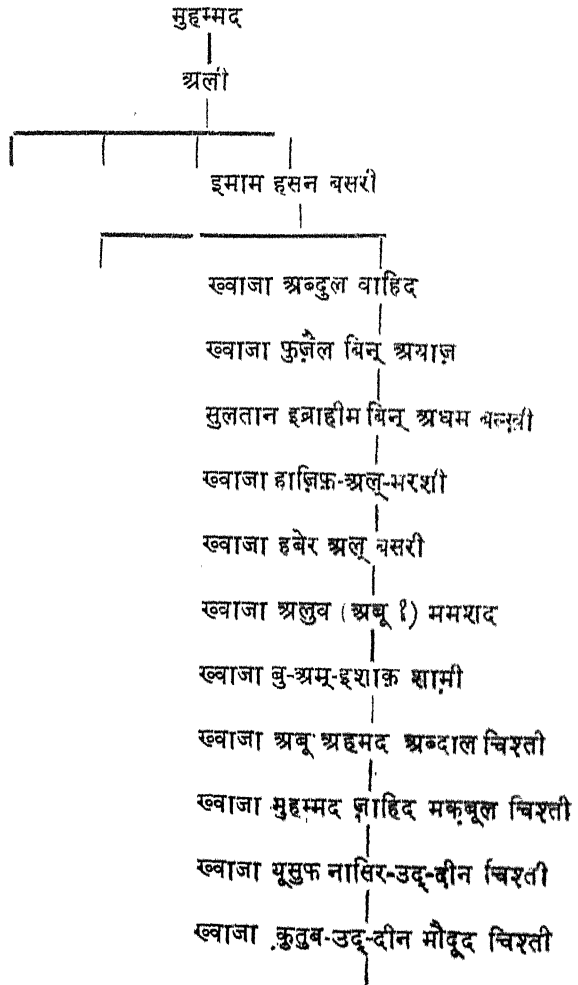 मुहम्मद
अली
इमाम हसन बसरी
ख्वाजा अब्दुल वाहिद
ख्वाजा फ़ुज़ैल बिन् अयाज़
सुलतान इब्राहीम बिन् अधम बल्ख़ी
ख्वाजा हाज़िफ़-अल्-मरशी
ख्वाजा हबेर अल् बसरी
ख्वाजा अलुव (अबू ?) ममशद
ख्वाजा बु-अम्-इशाक़ शामी
ख्वाजा अबू अहमद अब्दाल चिश्ती
ख्वाजा मुहम्मद ज़ाहिद मक़बूल चिश्ती
ख्वाजा यूसुफ नासिर-उद्-दीन चिश्ती
ख्वाजा क़ुतुब-उद्-दीन मौदूद चिश्ती